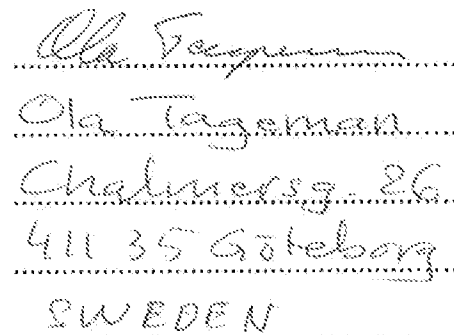 Ola Tageman
Ola Tageman
Chalmersg. 26
411 35 Göteborg
SWEDEN